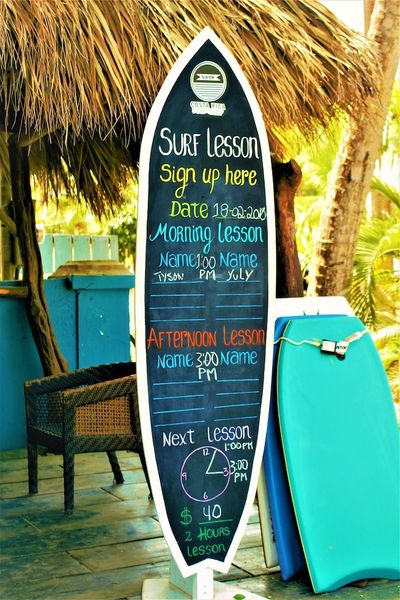 COSTA RICA
SURF Lesson
Sign up here
Date 18-02-2018
Morning Lesson
Name 1:00 PM Name
Tyson Yuly
Afternoon Lesson
Name 3:00 PM Name
Next Lesson
1:00PM
12
9 3
3:00 PM
$ 40
2 Hours
Lesson